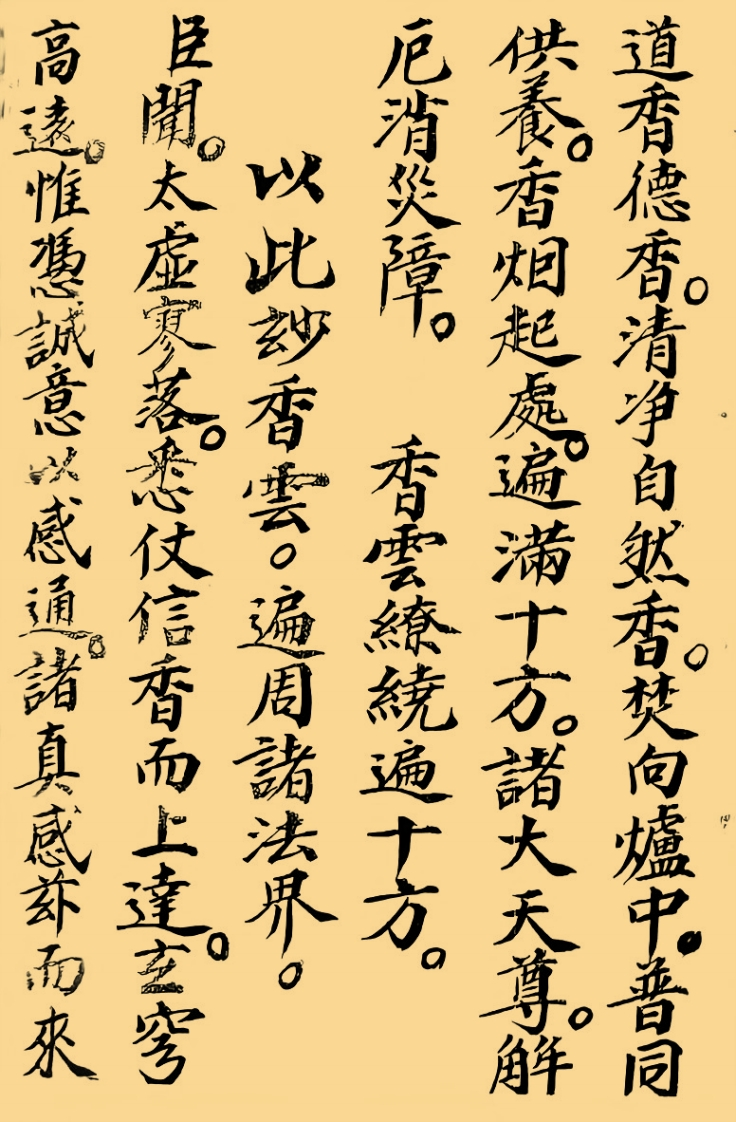 道香德香。清净自然香。焚向爐中。普同
供養。香烟起處。遍滿十方。諸大天尊。解
厄消災障。　香雲繚繞遍十方。
以此玅香雲。遍周諸法界。
臣聞。太虛寥落。悉仗信香而上達。玄穹
高遠。惟憑誠意以感通。諸真感玆而來